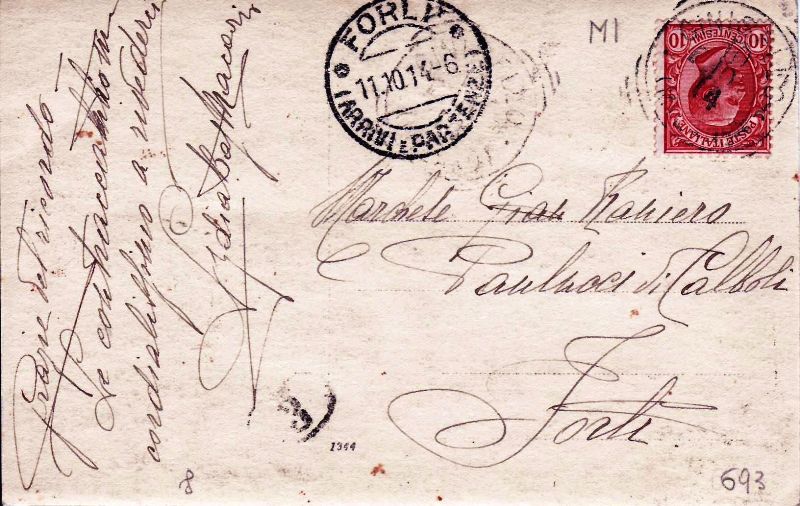 Grazie del ricordo
Le contraccambio
cordialissimo a rivederci
Lidia
FORLI
11.10.14-6
(ARRIVI E PARTENZE)
MI
10 CENTESIMI 10
POSTE ITALIANE
Marchese Gian Raniero
Paulucci di Calboli
Forlì
1344
8
693